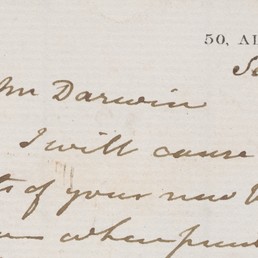 50, Al
Se
Darwin
I will cause
of your new
when